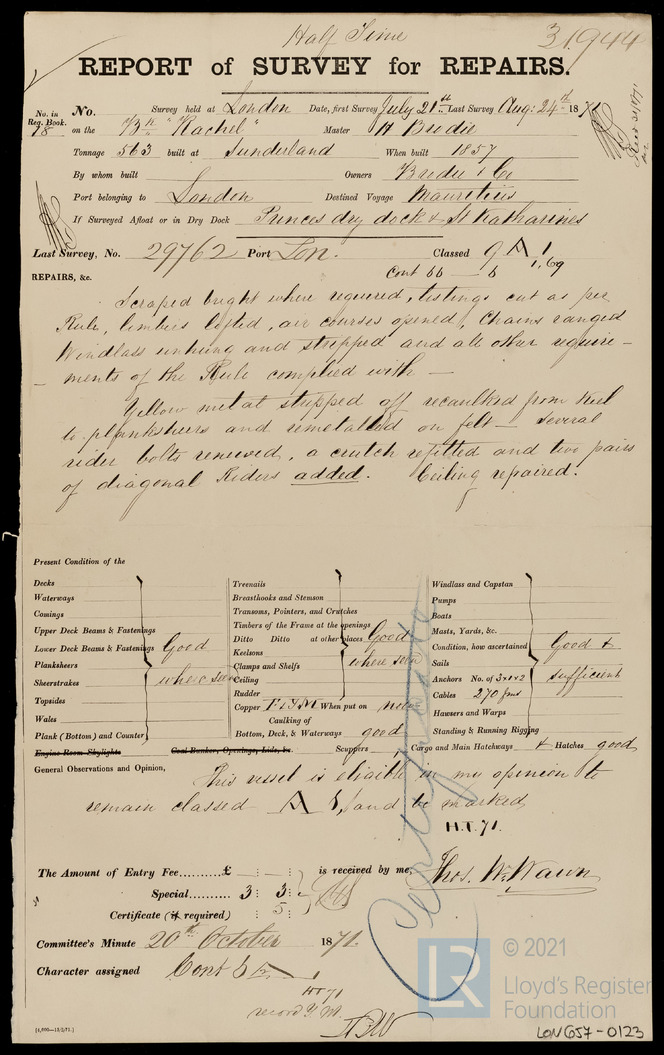 Half Time
31944
REPORT of SURVEY for REPAIRS.
No. in Reg. Book. 78 No. Survey held at London Date, first Survey July 21st Last Survey Aug: 24th 1871
on the Bk "Rachel" Master H Brodie
Tonnage 563 built at Sunderland When built 1857
By whom built Owners Brodie & Co
Port belonging to London Destined Voyage Mauritius
If Surveyed Afloat or in Dry Dock Princes dry dock & St Katharines
Last Survey, No. 29762 Port Lon. Classed 9 A 1
Cont 6 1,69
REPAIRS, &c.
Scraped bright where required, listings cut as per
Rule, limbers lifted, air courses opened, Chains ranged
Windlass unhung and stripped and all other require-
-ments of the Rule complied with —
Yellow metal stripped off recaulked from keel
to planksheers and remetalled on felt — Several
rider bolts renewed, a crutch refitted and two pairs
of diagonal Riders added. Ceiling repaired.
Present Condition of the
Decks
Waterways
Comings
Upper Deck Beams & Fastenings
Lower Deck Beams & Fastenings Good
Planksheers
Sheerstrakes where seen
Topsides
Wales
Plank (Bottom) and Counter
Engine Room Skylights Coal Bunker, Openings, Lids, &c.
Treenails
Breasthooks and Stemson
Transoms, Pointers, and Crutches
Timbers of the Frame at the openings
Ditto Ditto at other places Good
Keelsons
Clamps and Shelfs where seen
Ceiling
Rudder
Copper F & YM When put on now
Caulking of
Bottom, Deck, & Waterways good
Scuppers Cargo and Main Hatchways & Hatches good
Windlass and Capstan
Pumps
Boats
Masts, Yards, &c.
Condition, how ascertained Good &
Sails
Anchors No. of 3x1x2 sufficient
Cables 270 fms
Hawsers and Warps
Standing & Running Rigging
General Observations and Opinion,
This vessel is eligible in my opinion to
remain classed A 1, and be marked
H.T. 71.
The Amount of Entry Fee..........£ : — : — is received by me,
Special.......... 3 : 3 : Thos. W. Wawn
Certificate (if required) : 5 :
Committee's Minute 20th October 1871.
Character assigned Cont 6 A 1
HT 71
record Y.M.
[4,000—13/2/71.]
© 2021
LR
Lloyd's Register
Foundation
LON657-0123